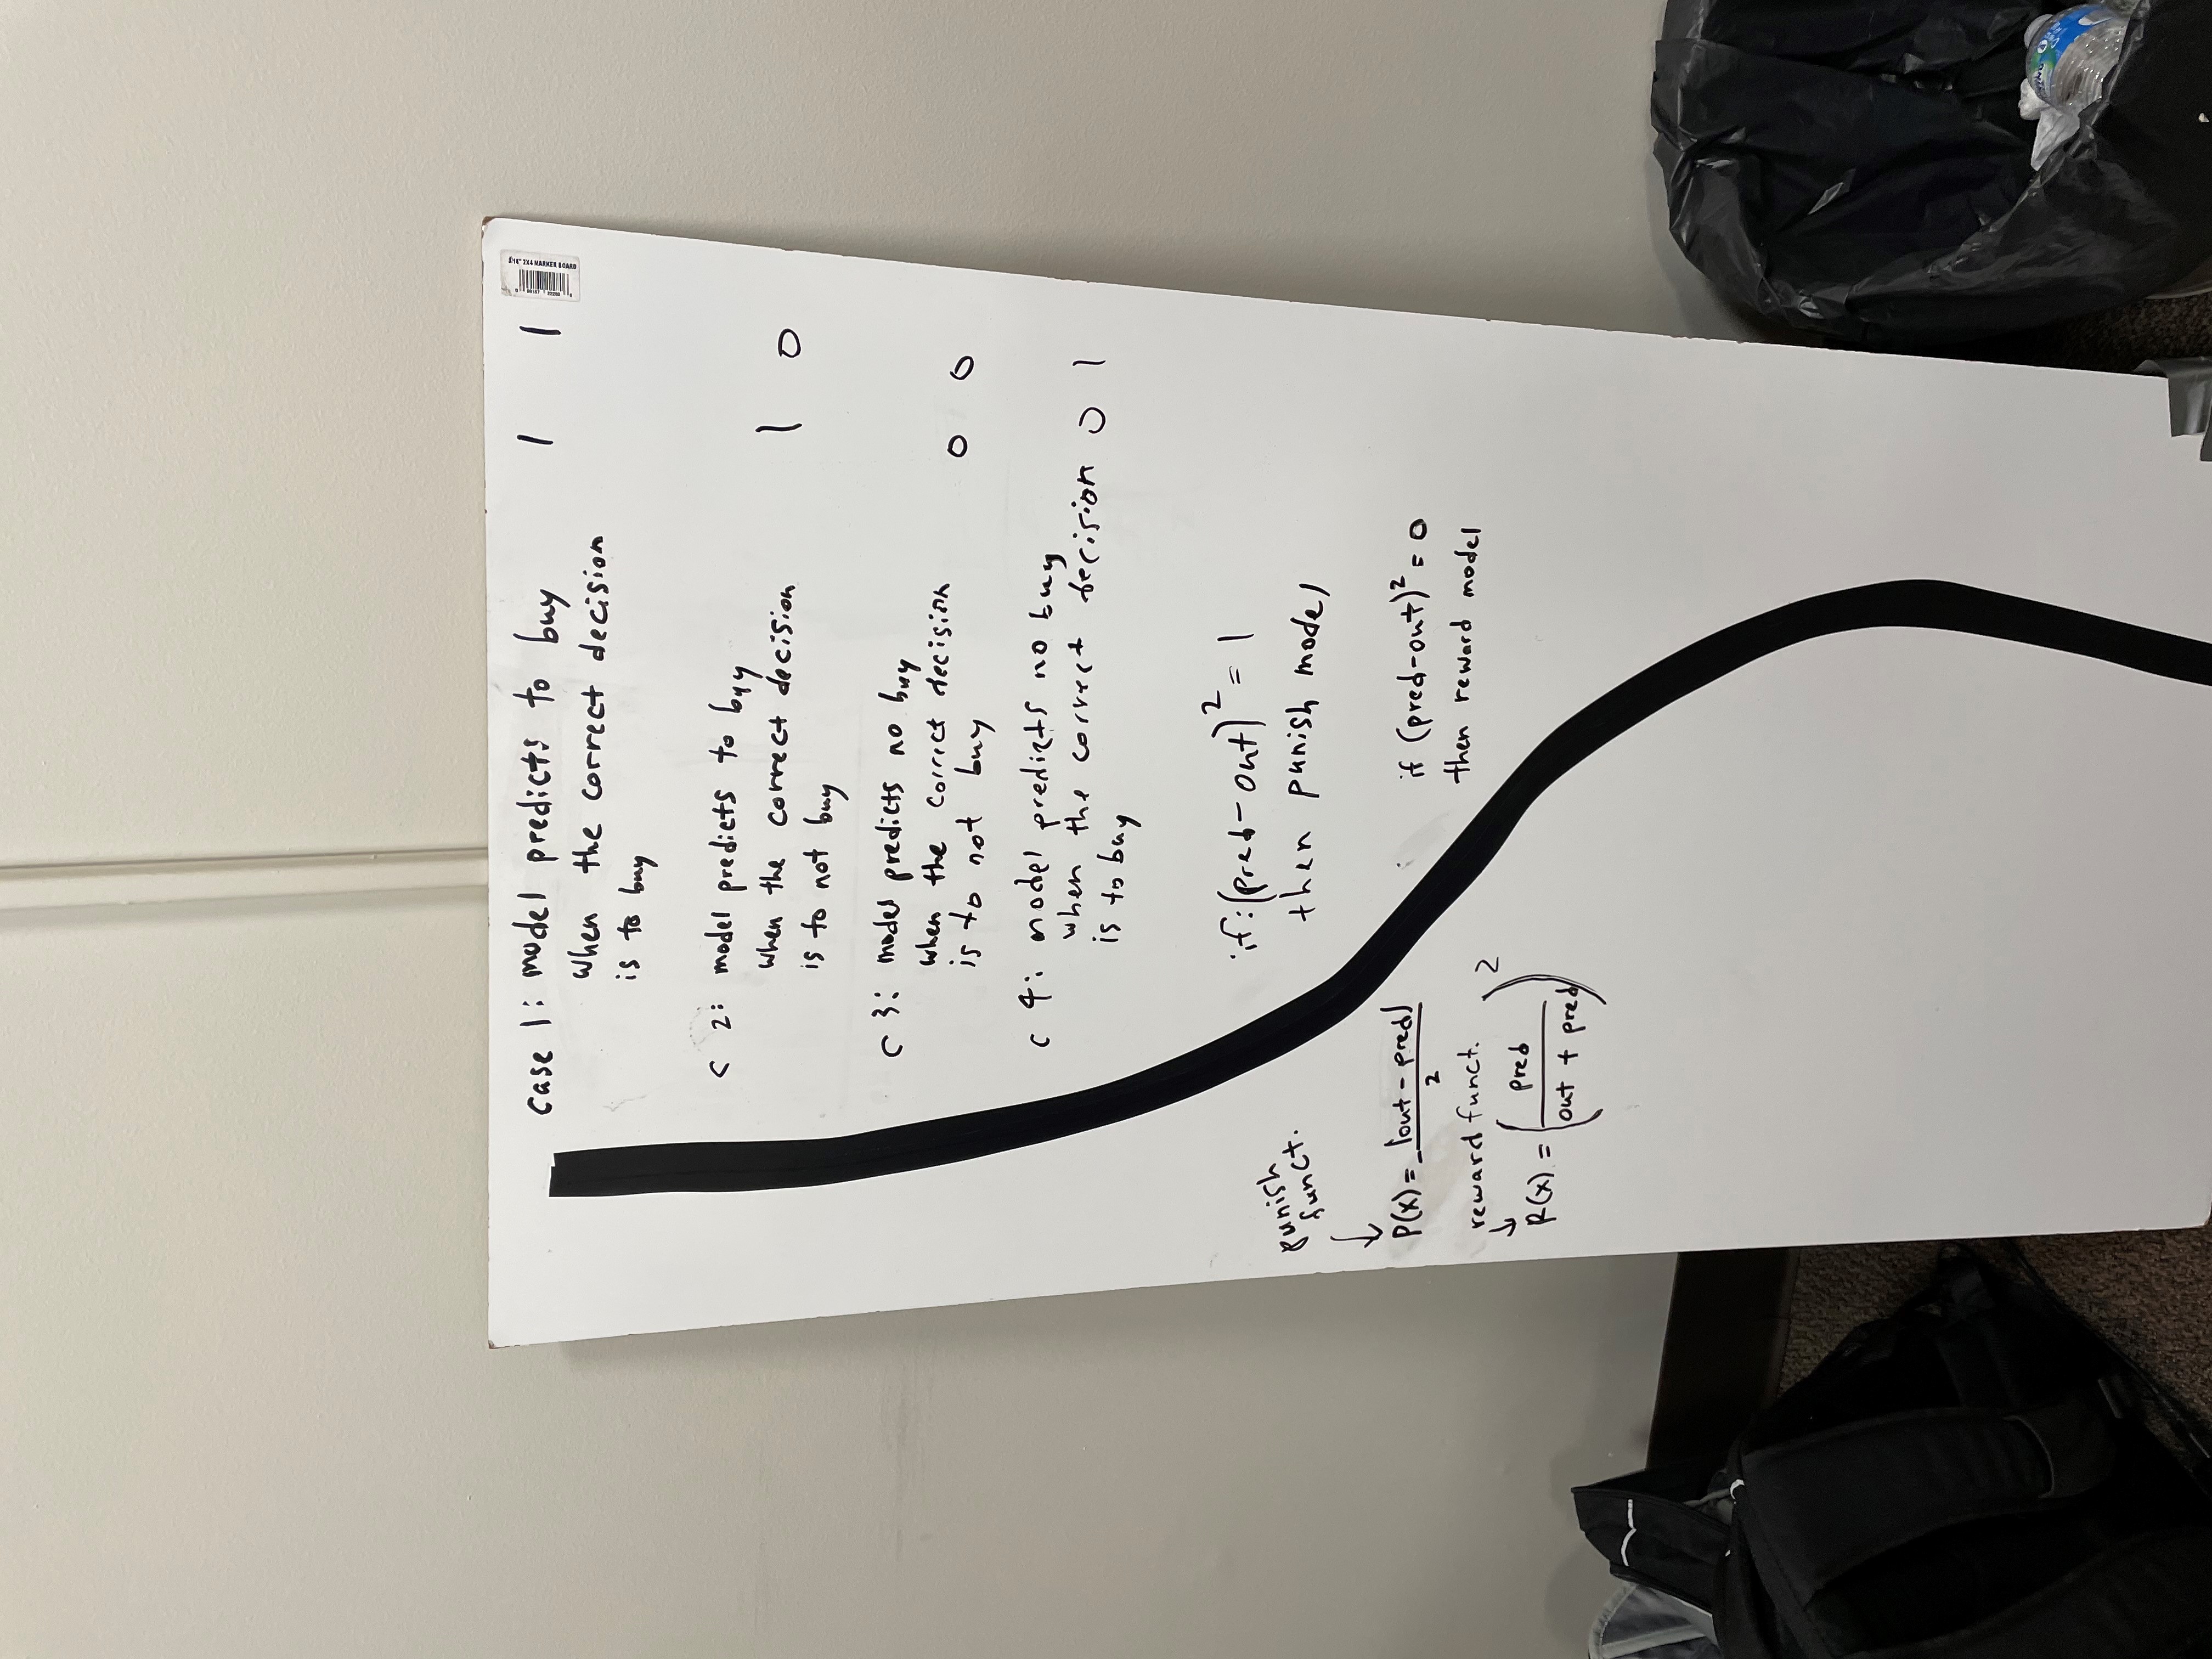 5/16" 2X4 MARKER BOARD
Case 1: model predicts to buy 1 1
when the correct decision
is to buy
C 2: model predicts to buy
when the correct decision 1 0
is to not buy
C 3: model predicts no buy
when the correct decision 0 0
is to not buy
C 4: model predicts no buy
when the correct decision 0 1
is to buy
if: (pred-out)² = 1
then punish model
if (pred-out)² = 0
then reward model
punish
funct.
↓
P(x) = -|out - pred|
2
reward funct.
↓
R(x) = (pred / out + pred)²